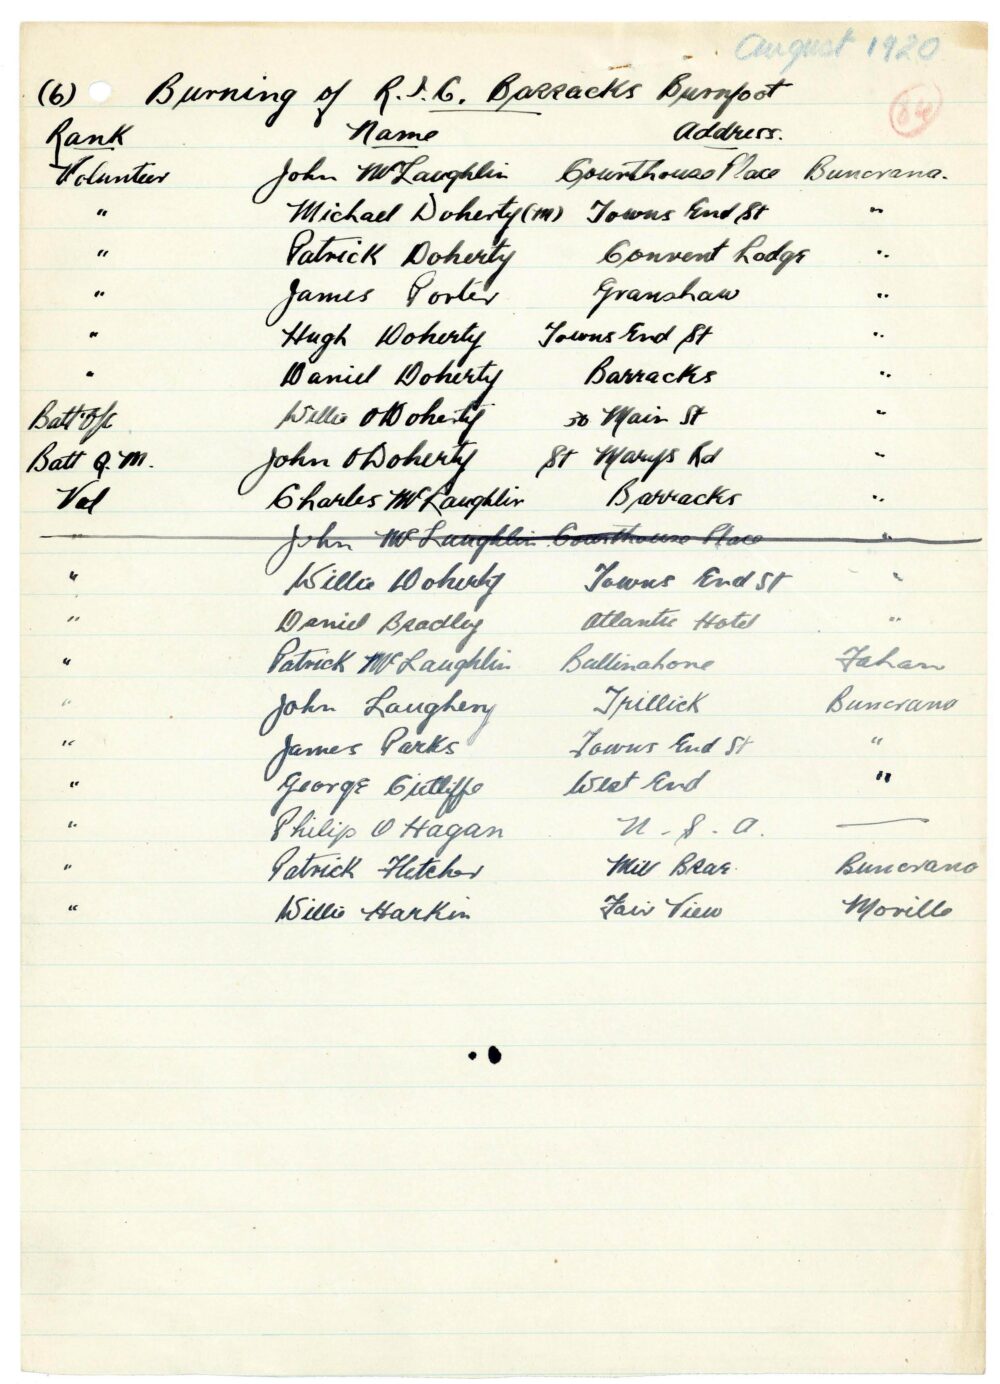 August 1920
(6) Burning of R.I.C. Barracks Burnfoot
84
Rank Name Address.
Volunteer John McLaughlin Courthouse Place Buncrana.
" Michael Doherty (M) Towns End St "
" Patrick Doherty Convent Lodge "
" James Porter Granshaw "
" Hugh Doherty Towns End St "
" Daniel Doherty Barracks "
Batt O/C Willie O'Doherty 30 Main St "
Batt Q.M. John O'Doherty St Marys Rd "
Vol Charles McLaughlin Barracks "
" John McLaughlin Courthouse Place "
" Willie Doherty Towns End St "
" Daniel Bradley Atlantic Hotel "
" Patrick McLaughlin Ballinahone Fahan
" John Laughery Trillick Buncrana
" James Parks Towns End St "
" George Cutliffe West End "
" Philip O Hagan U.S.A. —
" Patrick Fletcher Mill Brae Buncrana
" Willie Harkin Fair View Moville